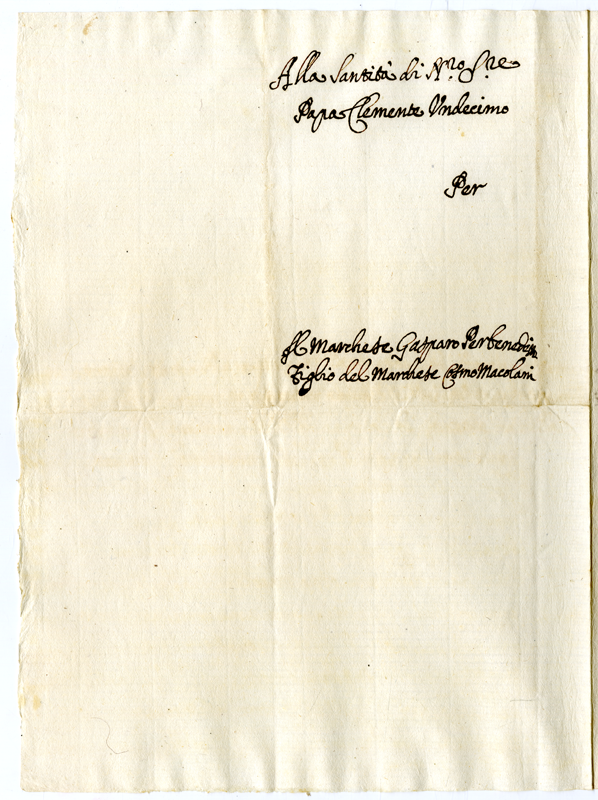 Alla Santità di N.ro S.re
Papa Clemente Undecimo
Per
Il Marchese Gasparo Perbenedetti
Figlio del Marchese Cosmo Macolani